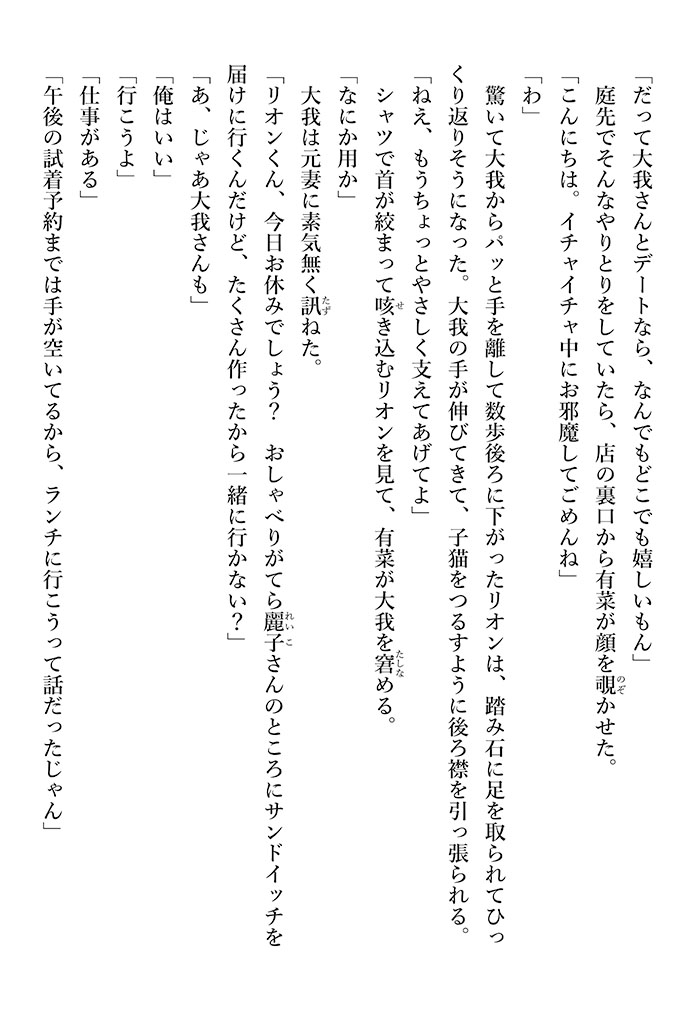 「だって大我さんとデートなら、なんでもどこでも嬉しいもん」
　庭先でそんなやりとりをしていたら、店の裏口から有菜が顔を覗かせた。
「こんにちは。イチャイチャ中にお邪魔してごめんね」
「わ」
　驚いて大我からパッと手を離して数歩後ろに下がったリオンは、踏み石に足を取られてひっ
くり返りそうになった。大我の手が伸びてきて、子猫をつるすように後ろ襟を引っ張られる。
「ねえ、もうちょっとやさしく支えてあげてよ」
　シャツで首が絞まって咳き込むリオンを見て、有菜が大我を窘める。
「なにか用か」
　大我は元妻に素気無く訊ねた。
「リオンくん、今日お休みでしょう？　おしゃべりがてら麗子さんのところにサンドイッチを
届けに行くんだけど、たくさん作ったから一緒に行かない？」
「あ、じゃあ大我さんも」
「俺はいい」
「行こうよ」
「仕事がある」
「午後の試着予約までは手が空いてるから、ランチに行こうって話だったじゃん」